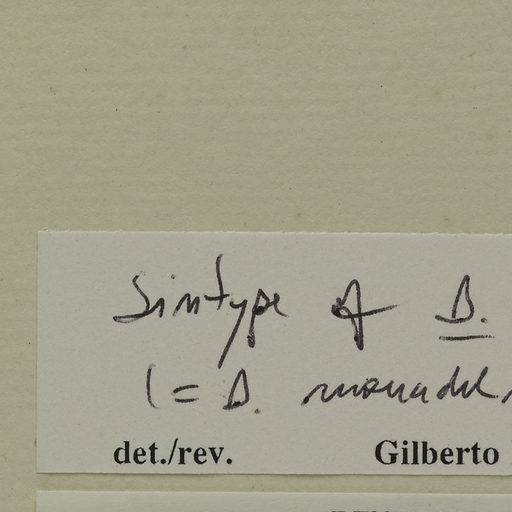 Sintype of D.
(= D. monadel
det./rev. Gilberto